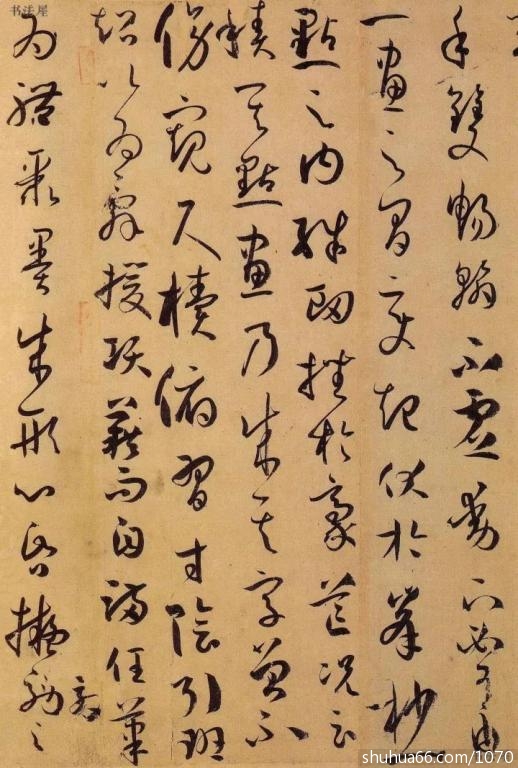 手雙暢翰不虛動下必有由
一畫之間變起伏於峯杪一
點之內殊衄挫於豪芒況云
積其點畫乃成其字曾不
傍窺尺牘俯習寸陰引班
超以為辭援項籍而自滿任筆
為體聚墨成形心昏擬効之
书法屋
shuhua66.com/1070